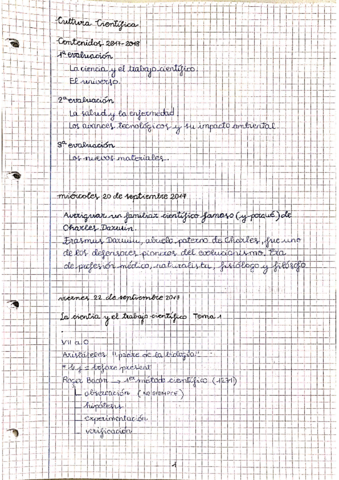 Cultura Científica
Contenidos 2017-2018
1ª evaluación
La ciencia y el trabajo científico.
El universo.
2ª evaluación
La salud y la enfermedad
Los avances tecnológicos y su impacto ambiental
3ª evaluación
Los nuevos materiales.
miércoles 20 de septiembre 2017
Averiguar un familiar científico famoso (y porqué) de
Charles Darwin.
Erasmus Darwin, abuelo paterno de Charles, fue uno
de los defensores pioneros del evolucionismo. Era
de profesión médico, naturalista, fisiólogo y filósofo
viernes 22 de septiembre 2017
La ciencia y el trabajo científico Tema 1
VII a.C
Aristóteles "padre de la biología"
* b.p = before present
Roger Bacon → 1er método científico (1271)
observación (NO SIEMPRE)
hipótesis
experimentación
verificación
1